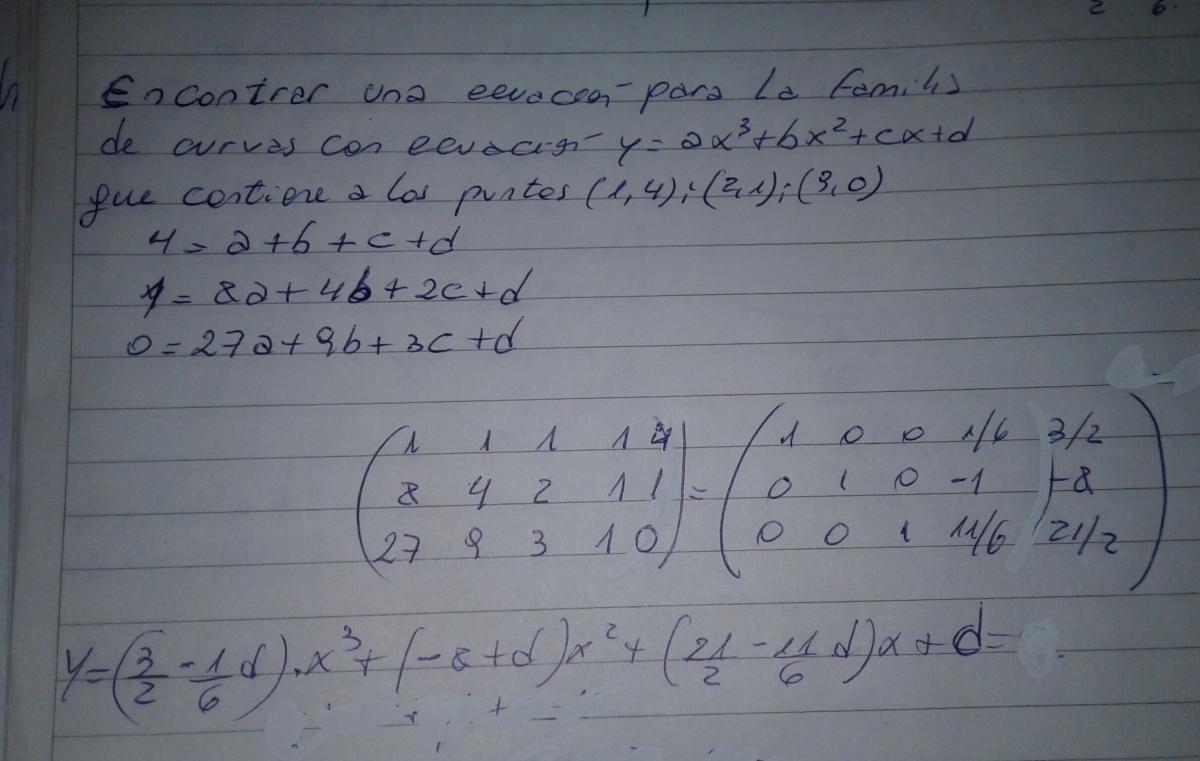 Encontrar una ecuación para la familia
de curvas con ecuación y=ax³+bx²+cx+d
que contiene a los puntos (1,4);(2,1);(3,0)
4=a+b+c+d
1=8a+4b+2c+d
0=27a+9b+3c+d
(1 1 1 1 4 | = (1 0 0 1/6 ) 3/2)
8 4 2 1 1 0 1 0 -1 -8
27 9 3 1 0 0 0 1 11/6 21/2
y=(3/2-1/6 d).x³+(-8+d)x²+(21/2-11/6 d)x+d=